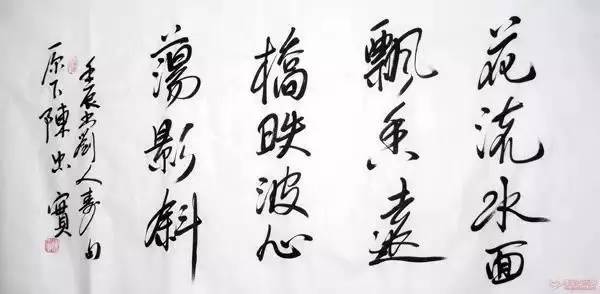 花流水面
飘香远
橋昳波心
蕩影斜
壬辰书劉人寿句
原下陳忠實